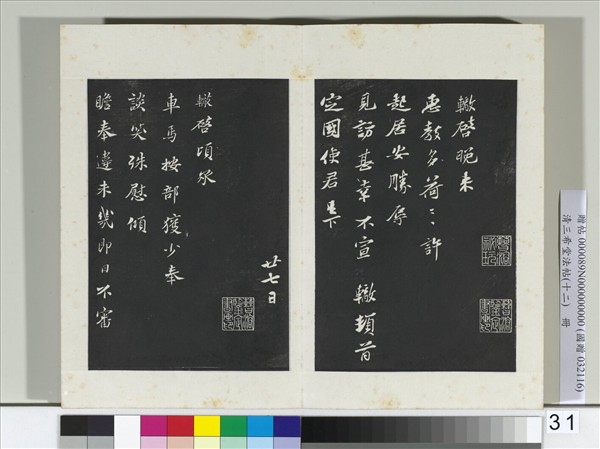 轍啓晚來
惠教多荷〻許
起居安勝辱
見訪甚幸不宣 轍頓首
定國使君足下
廿七日
轍啓頃承
車馬按部獲少奉
談笑殊慰傾
瞻奉違未幾即日不審
贈帖 000089N000000000 (國贈 032116)
清三希堂法帖(十二) 冊
31